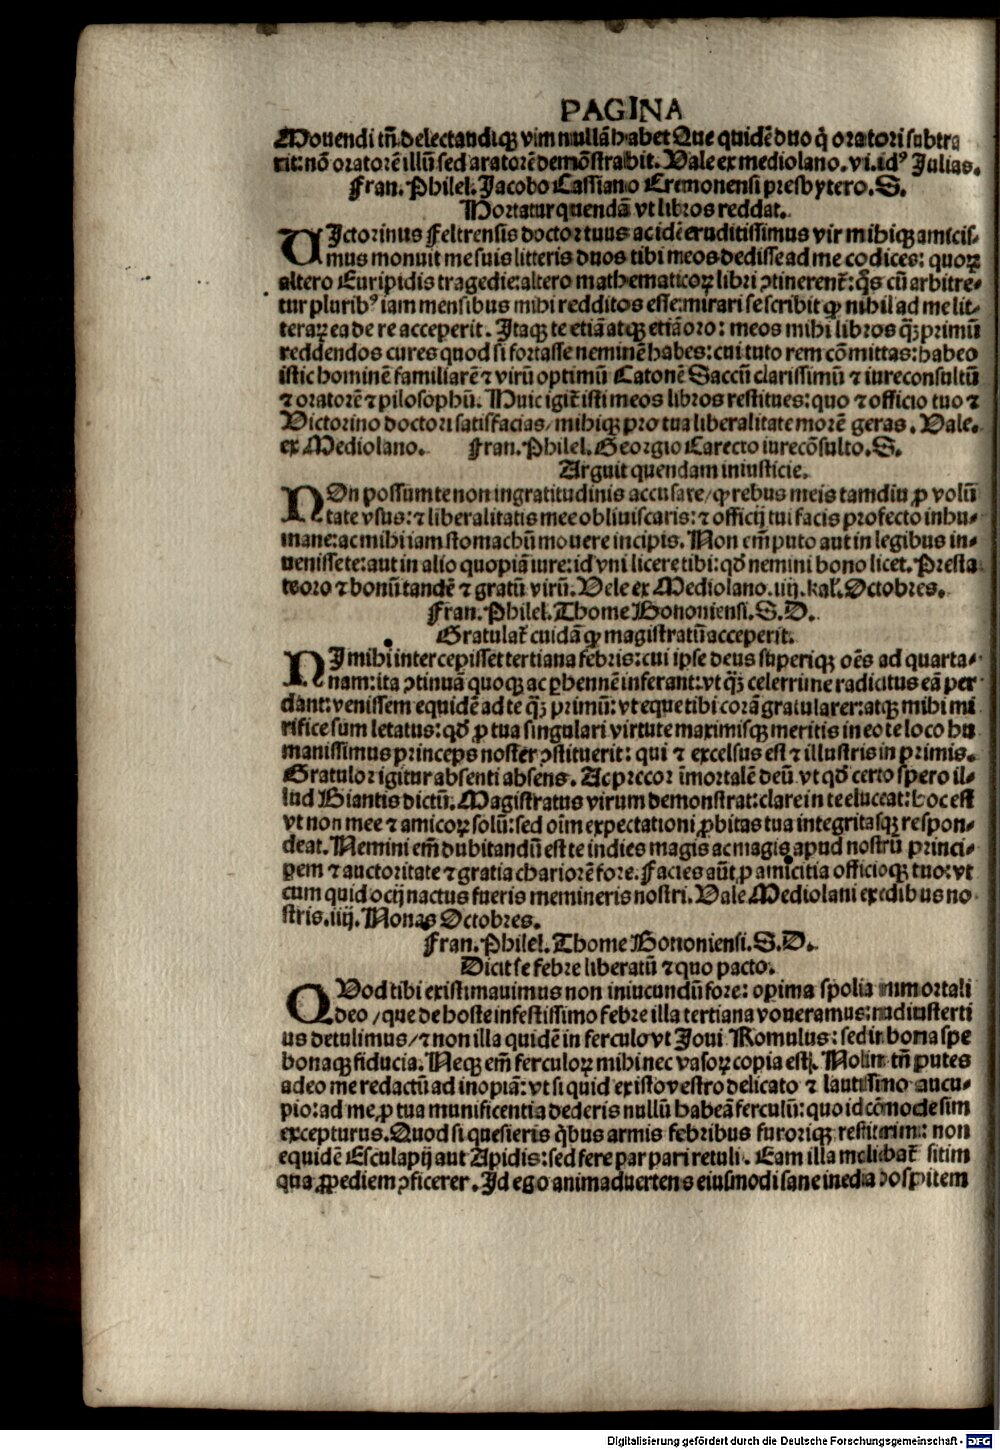 PAGINA
Mouendi tñ.delectandiqꝫ vim nullã habet Que quidẽ duo q̃ oratori subtra
rit:nõ oratorẽ illũ sed aratorẽ demõstrabit. Vale ex mediolano.vi.idꝰ Julias.
Fran.Philel.Jacobo Cassiano Cremonensi presbytero.S.
Hortatur quendã vt libros reddat.
VIctorinus Feltrensis doctor tuus ac idẽ eruditissimus vir mihiqꝫ amicis-
mus monuit me suis litteris duos tibi meos dedisse ad me codices: quoꝝ
altero Euripidis tragedie:altero mathematicoꝝ libri ꝯtinerent̃: q̃s cũ arbitre-
tur pluribꝰ iam mensibus mihi redditos esse:mirari se scribit ꝙ nihil ad me lit-
teraꝝ ea de re acceperit. Itaqꝫ te etiã atqꝫ etiã oro: meos mihi libros q̃ꝫprimũ
reddendos cures quod si fortasse neminẽ habes:cui tuto rem cõmittas:habeo
istic hominẽ familiarẽ ⁊ virũ optimũ Catonẽ Saccũ clarissimũ ⁊ iureconsultũ
⁊ oratorẽ ⁊ pilosophũ. Huic igit̃ isti meos libros restitues:quo ⁊ officio tuo ⁊
Victorino doctori satisfacias/mihiqꝫ pro tua liberalitate morẽ geras. Vale.
ex Mediolano. Fran.Philel.Georgio Carecto iurecõsulto.S.
Arguit quendam iniusticie.
NOn possum te non ingratitudinis accusare/ꝙ rebus meis tamdiu ꝓ volũ
tate vsus:⁊ liberalitatis mee obliuiscaris:⁊ officij tui facis profecto inhu-
mane:ac mihi iam stomachũ mouere incipis. Non em̃ puto aut in legibus in-
uenisse te:aut in alio quopiã iure:id vni licere tibi:qd̃ nemini bono licet. Presta
te oro ⁊ bonũ tandẽ ⁊ gratũ virũ. Vele ex Mediolano.iiij.kal̃.Octobres.
Fran.Philel.Thome Bononiensi.S.D.
Gratulat̃ cuidã ꝙ magistratũ acceperit.
NI mihi intercepisset tertiana febris:cui ipse deus superiqꝫ oẽs ad quarta-
nam:ita ꝯtinuã quoqꝫ ac ꝑhennẽ inferant:vt q̃ꝫ celerrime radicitus eã per
dant:venissem equidẽ ad te q̃ꝫ primũ:vt eque tibi corã gratularer:atqꝫ mihi mi
rifice sum letatus:qd̃ ꝓ tua singulari virtute maximisqꝫ meritis in eo te loco hu
manissimus princeps noster ꝯstituerit: qui ⁊ excelsus est ⁊ illustris in primis.
Gratulor igitur absenti absens. Ac precor ĩmortalẽ deũ vt qd̃ certo spero il-
lud Biantis dictũ. Magistratus virum demonstrat:clare in te eluceat:hoc est
vt non mee ⁊ amicoꝝ solũ:sed oĩm expectationi ꝓbitas tua integritasqꝫ respon-
deat. Nemini em̃ dubitandũ est te indies magis ac magis apud nostrũ princi-
pem ⁊ auctoritate ⁊ gratia chariorẽ fore. Facies aũt ꝓ amicitia officioqꝫ tuo:vt
cum quid ocij nactus fueris memineris nostri. Vale Mediolani ex edibus no
stris.iiij. Nonas Octobres.
Fran.Philel.Thome Bononiensi.S.D.
Dicit se febre liberatũ ⁊ quo pacto.
QVod tibi existimauimus non iniucundũ fore: opima spolia immortali
deo/que de hoste infestissimo febre illa tertiana voueramus: nudiustertius
us detulimus/⁊ non illa quidẽ in ferculo vt Joui Romulus: sed in bona spe
bonaqꝫ fiducia. Neqꝫ em̃ ferculoꝝ mihi nec vasoꝝ copia est. Nolim tñ putes
adeo me redactũ ad inopiã:vt si quid existo vestro delicato ⁊ lautissimo aucu-
pio:ad me ꝓ tua munificentia dederis nullũ habeã ferculũ:quo id cõmode sim
excepturus. Quod si quesieris q̃bus armis febribus furoriqꝫ restiterim: non
equidẽ Esculapij aut Apidis:sed fere par pari retuli. Eam illa molibat̃ sitim
qua ꝓpediem ꝯficerer. Id ego animaduertens eiusmodi sane inedia hospitem
Digitalisierung gefördert durch die Deutsche Forschungsgemeinschaft - DFG